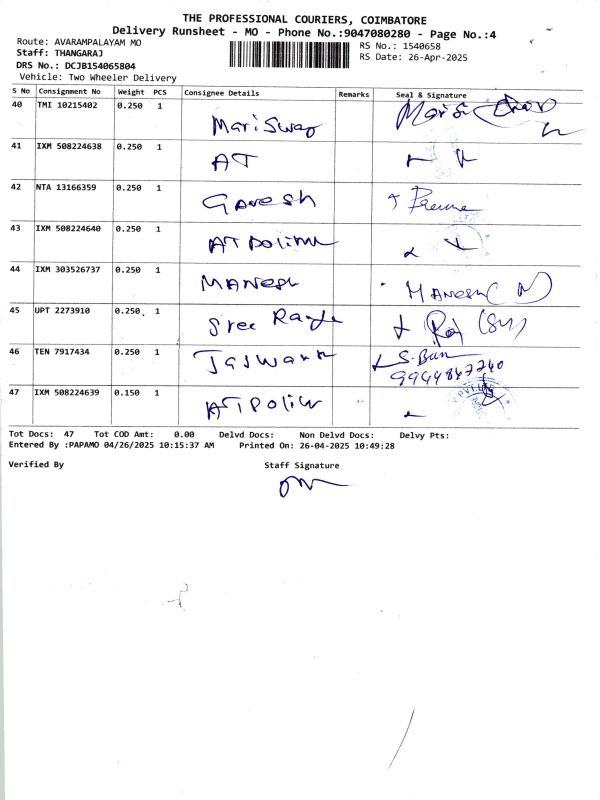 THE PROFESSIONAL COURIERS, COIMBATORE
Delivery Runsheet - MO - Phone No.:9047080280 - Page No.:4
Route: AVARAMPALAYAM MO
RS No.: 1540658
Staff: THANGARAJ
RS Date: 26-Apr-2025
DRS No.: DCJB154065804
Vehicle: Two Wheeler Delivery
S No Consignment No Weight PCS Consignee Details Remarks Seal & Signature
40 TMI 10215402 0.250 1
41 IXM 508224638 0.250 1 AT
42 NTA 13166359 0.250 1 Ganesh
43 IXM 508224640 0.250 1
44 IXM 303526737 0.250 1 MANESH MANESH
45 UPT 2273910 0.250 1 Sree Raj
46 TEN 7917434 0.250 1
9944847240
47 IXM 508224639 0.150 1
Tot Docs: 47 Tot COD Amt: 0.00 Delvd Docs: Non Delvd Docs: Delvy Pts:
Entered By :PAPAMO 04/26/2025 10:15:37 AM Printed On: 26-04-2025 10:49:28
Verified By Staff Signature